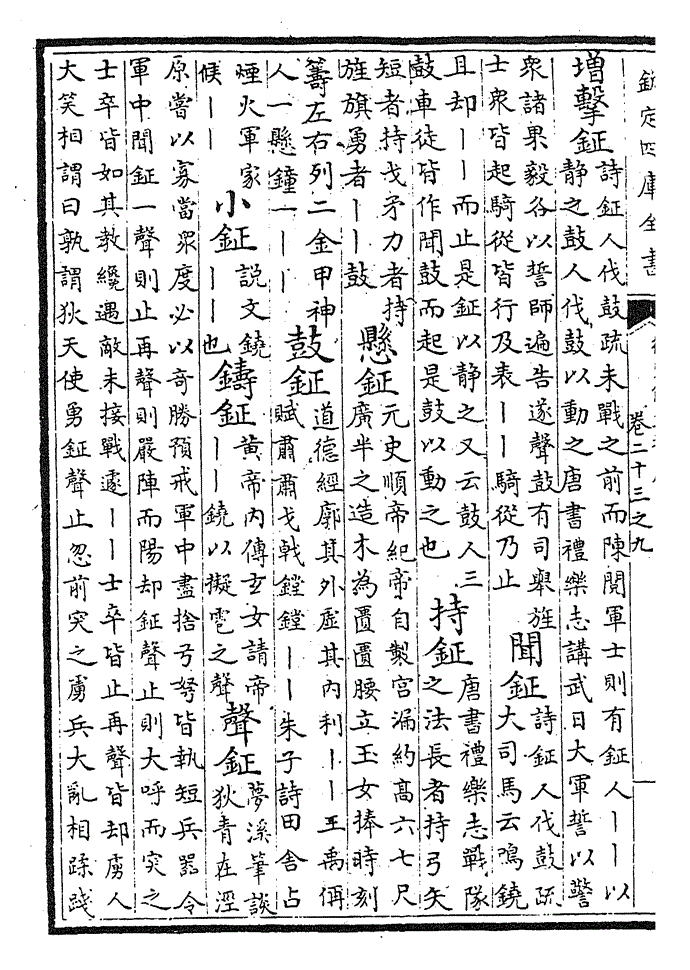 欽定四庫全書
卷二十三之九
增擊鉦
詩鉦人伐鼓疏未戰之前而陳閱軍士則有鉦人丨丨以
靜之鼓人伐鼓以動之唐書禮樂志講武日大軍誓以警
衆諸果毅各以誓師遍告遂聲鼓有司舉旌
士衆皆起騎從皆行及表丨丨騎從乃止
聞鉦
詩鉦人伐鼓疏
大司馬云鳴鐃
且却丨丨而止是鉦以靜之又云鼓人三
鼓車徒皆作聞鼓而起是鼓以動之也
持鉦
唐書禮樂志戰隊
之法長者持弓矢
短者持戈矛力者持
旌旗勇者丨丨鼓
懸鉦
元史順帝紀帝自製宮漏約高六七尺
廣半之造木為匱匱腰立玉女捧時刻
籌左右列二金甲神
人一懸鐘一丨丨
鼓鉦
道德經廓其外虛其內利丨丨王禹偁
賦肅肅戈戟鏜鏜丨丨朱子詩田舍占
煙火軍家
候丨丨
小鉦
説文鐃
丨丨也
鑄鉦
黄帝内傳玄女請帝
丨丨鐃以擬雹之聲
聲鉦
夢溪筆談
狄青在涇
原嘗以寡當衆度必以奇勝預戒軍中盡捨弓弩皆執短兵器令
軍中聞鉦一聲則止再聲則嚴陣而陽却鉦聲止則大呼而突之
士卒皆如其教纔遇敵未接戰遽丨丨士卒皆止再聲皆却虜人
大笑相謂曰孰謂狄天使勇鉦聲止忽前突之虜兵大亂相蹂踐